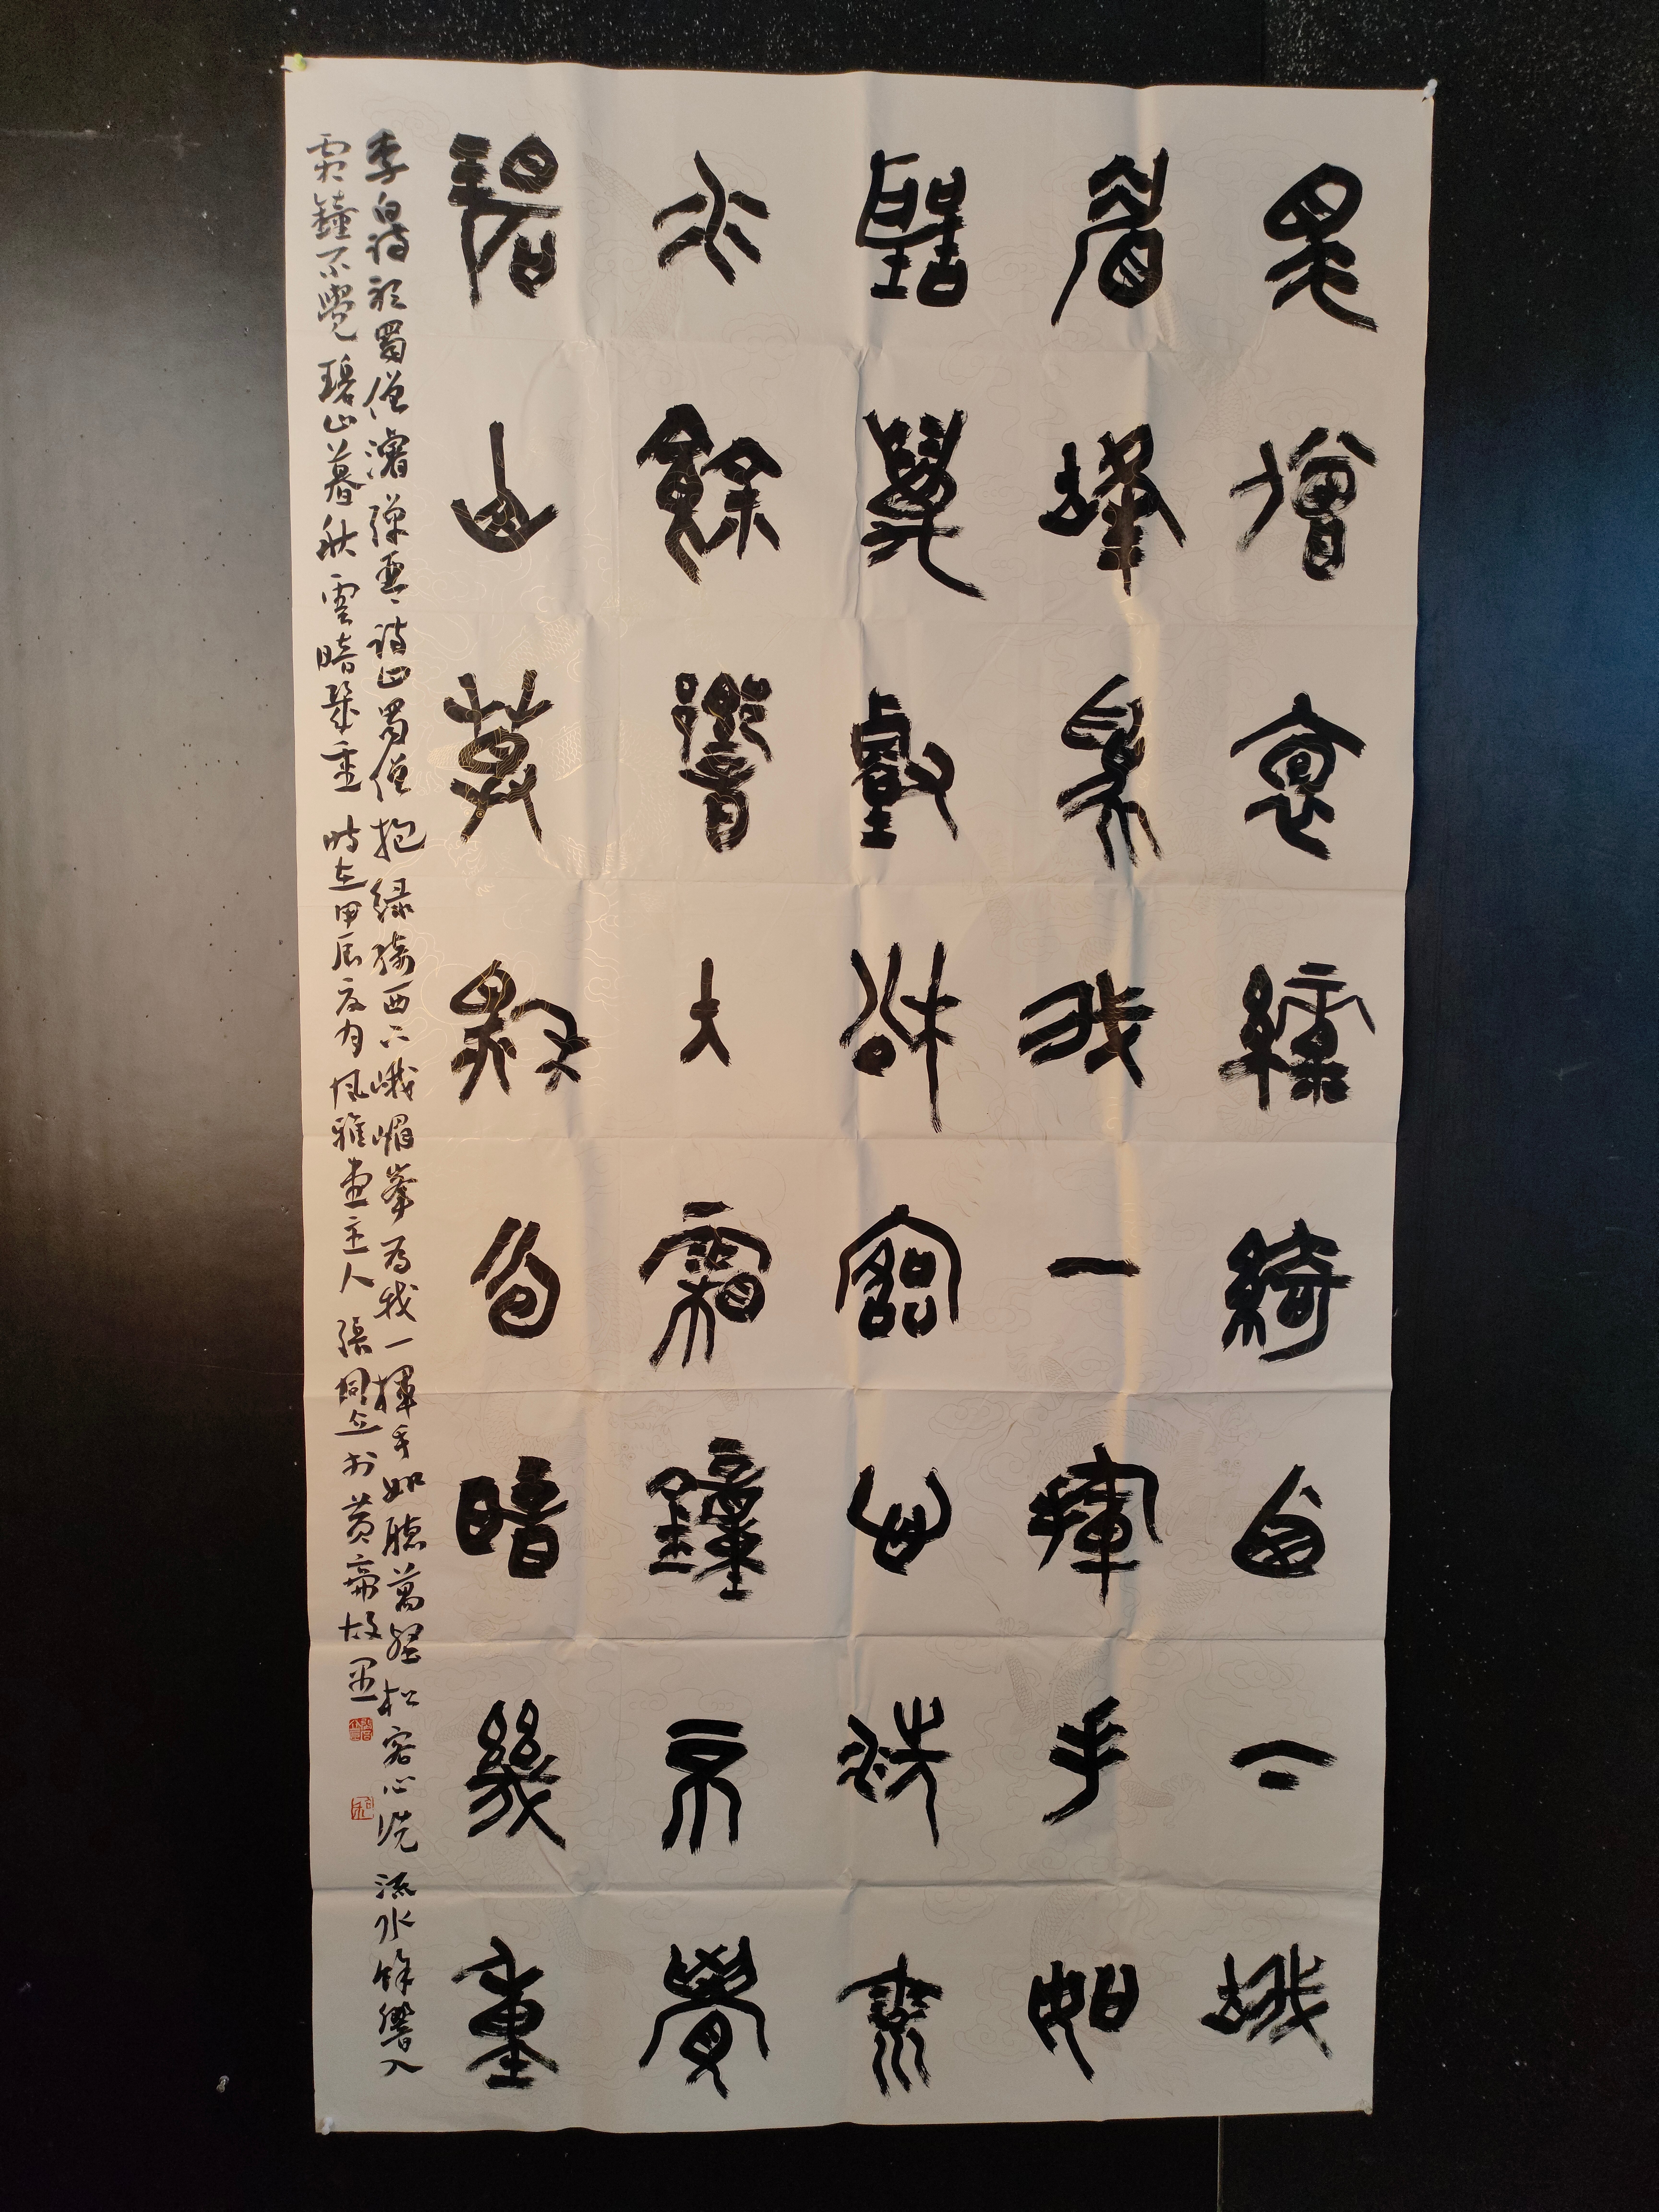 蜀僧抱綠綺西下峨
眉峰為我一揮手如
聽萬壑松客心洗流
水餘響入霜鐘不覺
碧山暮秋色暗幾重
李白詩聽蜀僧濬彈琴詩曰蜀僧抱綠綺西下峨嵋峯為我一揮手如聽萬壑松客心洗流水餘響入
霜鐘不覺碧山暮秋雲暗幾重時在甲辰夏月風雅堂主人張於黃帝故里